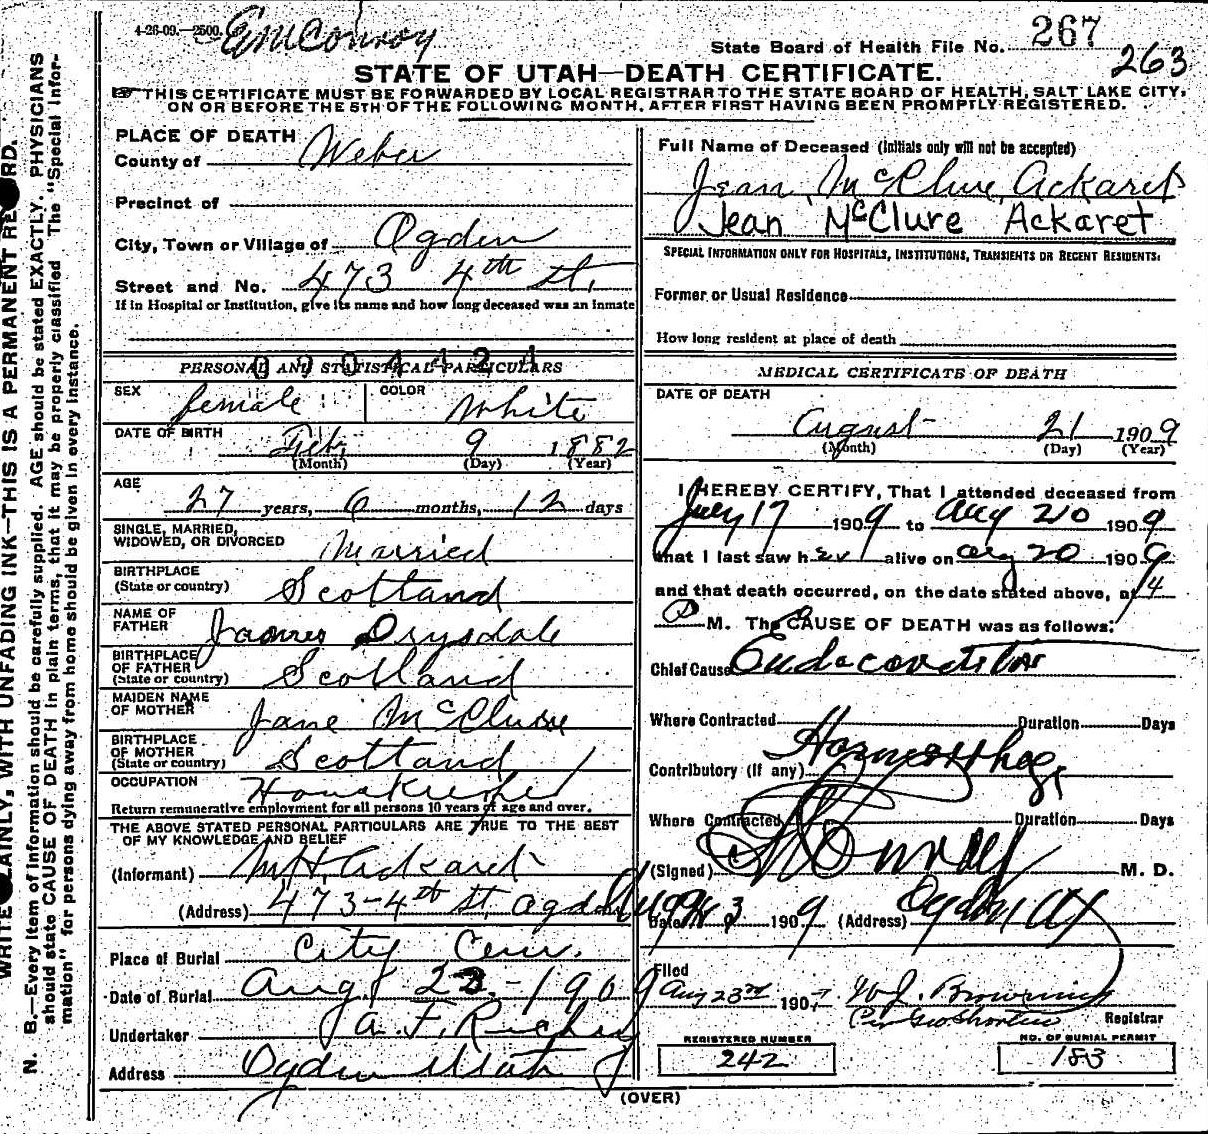 4-26-09.—2500. E M Conroy
State Board of Health File No. 267
263
STATE OF UTAH—DEATH CERTIFICATE.
THIS CERTIFICATE MUST BE FORWARDED BY LOCAL REGISTRAR TO THE STATE BOARD OF HEALTH, SALT LAKE CITY,
ON OR BEFORE THE 5TH OF THE FOLLOWING MONTH, AFTER FIRST HAVING BEEN PROMPTLY REGISTERED.
PLACE OF DEATH
County of Weber
Precinct of
City, Town or Village of Ogden
Street and No. 473 4th St.
If in Hospital or Institution, give its name and how long deceased was an inmate
PERSONAL AND STATISTICAL PARTICULARS
SEX female COLOR White
DATE OF BIRTH Feb. 9 1882
(Month) (Day) (Year)
AGE
27 years, 6 months, 12 days
SINGLE, MARRIED,
WIDOWED, OR DIVORCED Married
BIRTHPLACE
(State or country) Scotland
NAME OF
FATHER James Drysdale
BIRTHPLACE
OF FATHER
(State or country) Scotland
MAIDEN NAME
OF MOTHER Jane McClure
BIRTHPLACE
OF MOTHER
(State or country) Scotland
OCCUPATION Housekeeper
Return remunerative employment for all persons 10 years of age and over.
THE ABOVE STATED PERSONAL PARTICULARS ARE TRUE TO THE BEST
OF MY KNOWLEDGE AND BELIEF
(Informant) M H. Ackaret
(Address) 473-4th St. Ogden
Place of Burial City Cem.
Date of Burial Aug 22 - 1909
Undertaker
Address Ogden Utah
Full Name of Deceased (Initials only will not be accepted)
Jean McClure Ackaret
Jean McClure Ackaret
SPECIAL INFORMATION ONLY FOR HOSPITALS, INSTITUTIONS, TRANSIENTS OR RECENT RESIDENTS:
Former or Usual Residence
How long resident at place of death
MEDICAL CERTIFICATE OF DEATH
DATE OF DEATH
August 21 1909
(Month) (Day) (Year)
I HEREBY CERTIFY, That I attended deceased from
July 17 1909 to Aug 20 1909
that I last saw her alive on Aug 20 1909
and that death occurred, on the date stated above, at 4
P M. The CAUSE OF DEATH was as follows:
Chief Cause
Where Contracted Duration Days
Contributory (if any)
Where Contracted Duration Days
(Signed) M. D.
Date 1909 (Address) Ogden Ut
Filed
Aug 23rd 190 W J. Browning
Per Geo Shorten Registrar
REGISTERED NUMBER
242
NO. OF BURIAL PERMIT
183
(OVER)
WRITE PLAINLY, WITH UNFADING INK—THIS IS A PERMANENT RECORD.
N. B.—Every item of information should be carefully supplied. AGE should be stated EXACTLY. PHYSICIANS
should state CAUSE OF DEATH in plain terms, that it may be properly classified. The "Special Infor-
mation" for persons dying away from home should be given in every instance.